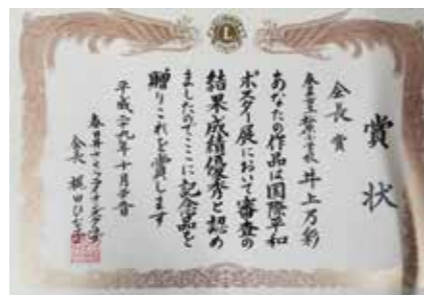 賞状
会長賞
井上万彩
あなたの作品は国際平和
ポスター展において審査の
結果成績優秀と認め
ましたのでここに記念品を
贈りこれを賞します
平成二九年十月
会長
L